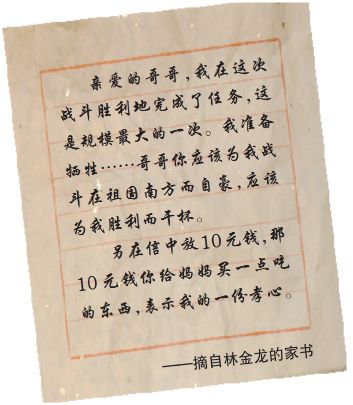 亲爱的哥哥，我在这次
战斗胜利地完成了任务，这
是规模最大的一次。我准备
牺牲……哥哥你应该为我战
斗在祖国南方而自豪，应该
为我胜利而干杯。
另在信中放10元钱，那
10元钱你给妈妈买一点吃
的东西，表示我的一份孝心。
——摘自林金龙的家书